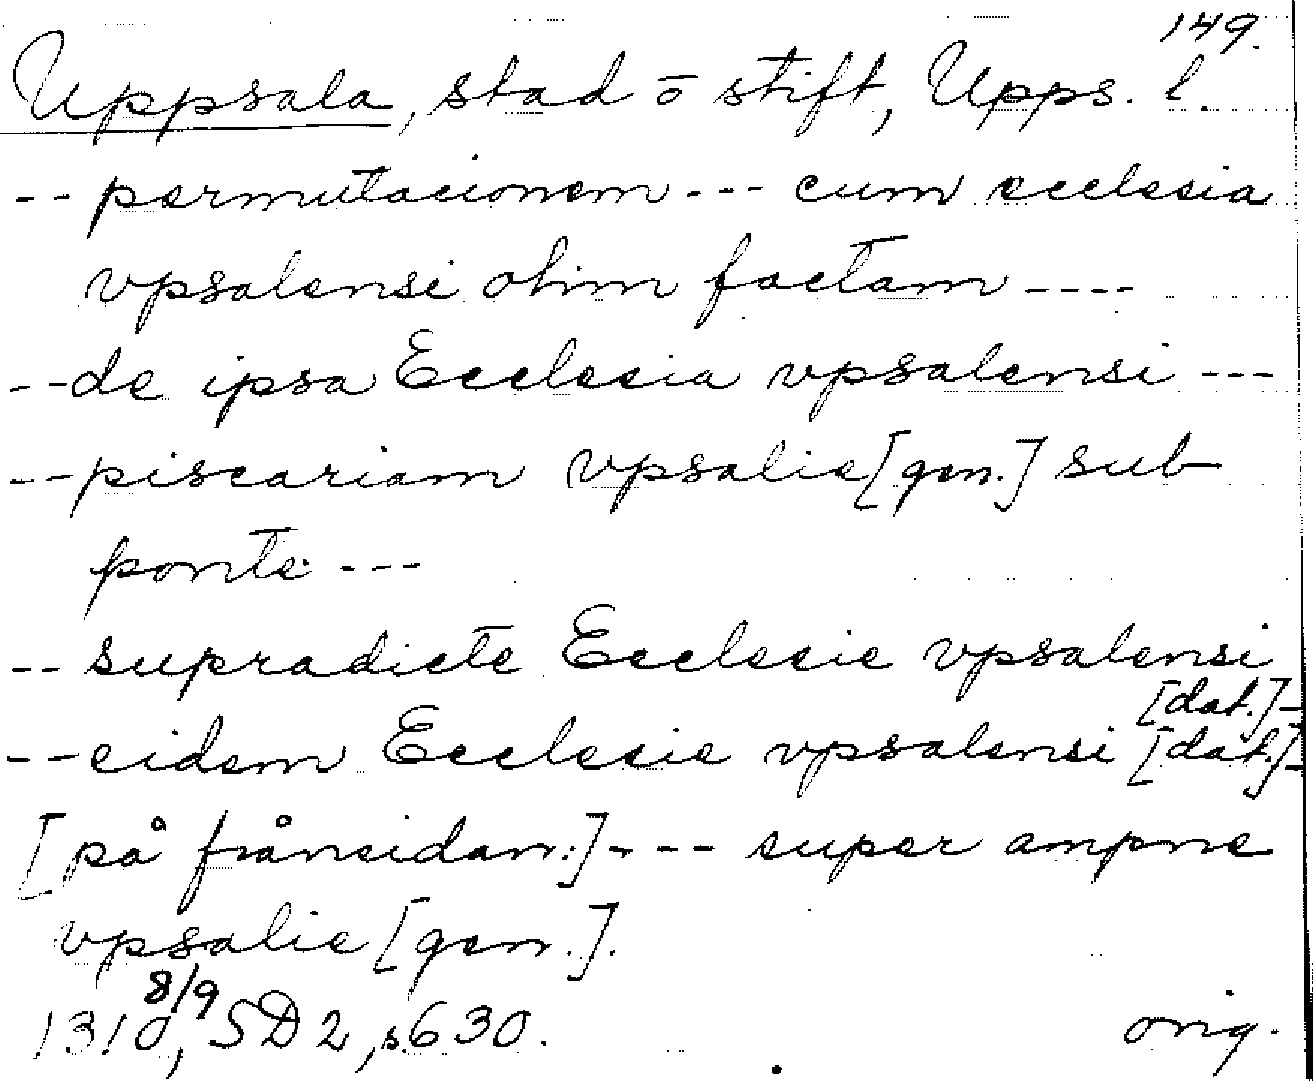 149.
Uppsala, stad o stift, Upps. l.
-- permutacionem --- cum ecclesia
vpsalensi olim factam ----
-- de ipsa Ecclesia vpsalensi ---
-- piscariam vpsalie [gen.] sub
ponte ---
-- supradicte Ecclesie vpsalensi
[dat.]-
-- eidem Ecclesie vpsalensi [dat.]-
[på frånsidan:] ---- super ampne
vpsalie [gen.].
1310 8/9, SD 2, s. 630. orig.